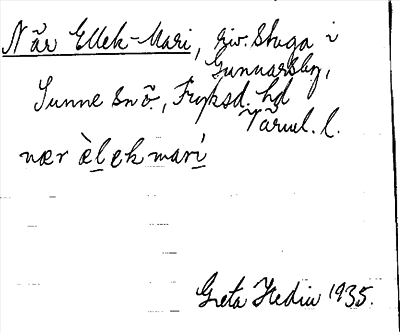 När Ellek-Mari, riv. Stuga i
Gunnarsby,
Sunne snö., Fryksd. hd
Värml. l.
nær èlekmari
Greta Hedin 1935.